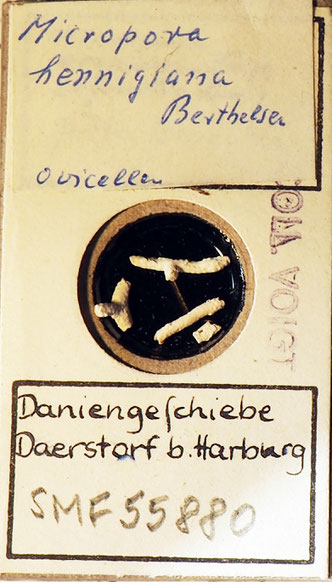 Micropora
hennigiana
Berthelsen
Ovicellen
COLL. VOIGT
Daniengeſchiebe
Daerstorf b. Harburg
SMF 55880